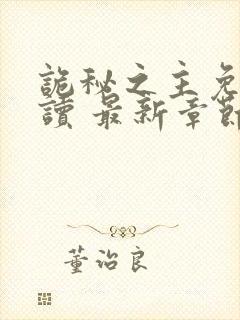 詭秘之主免
讀 最新章節
董治良